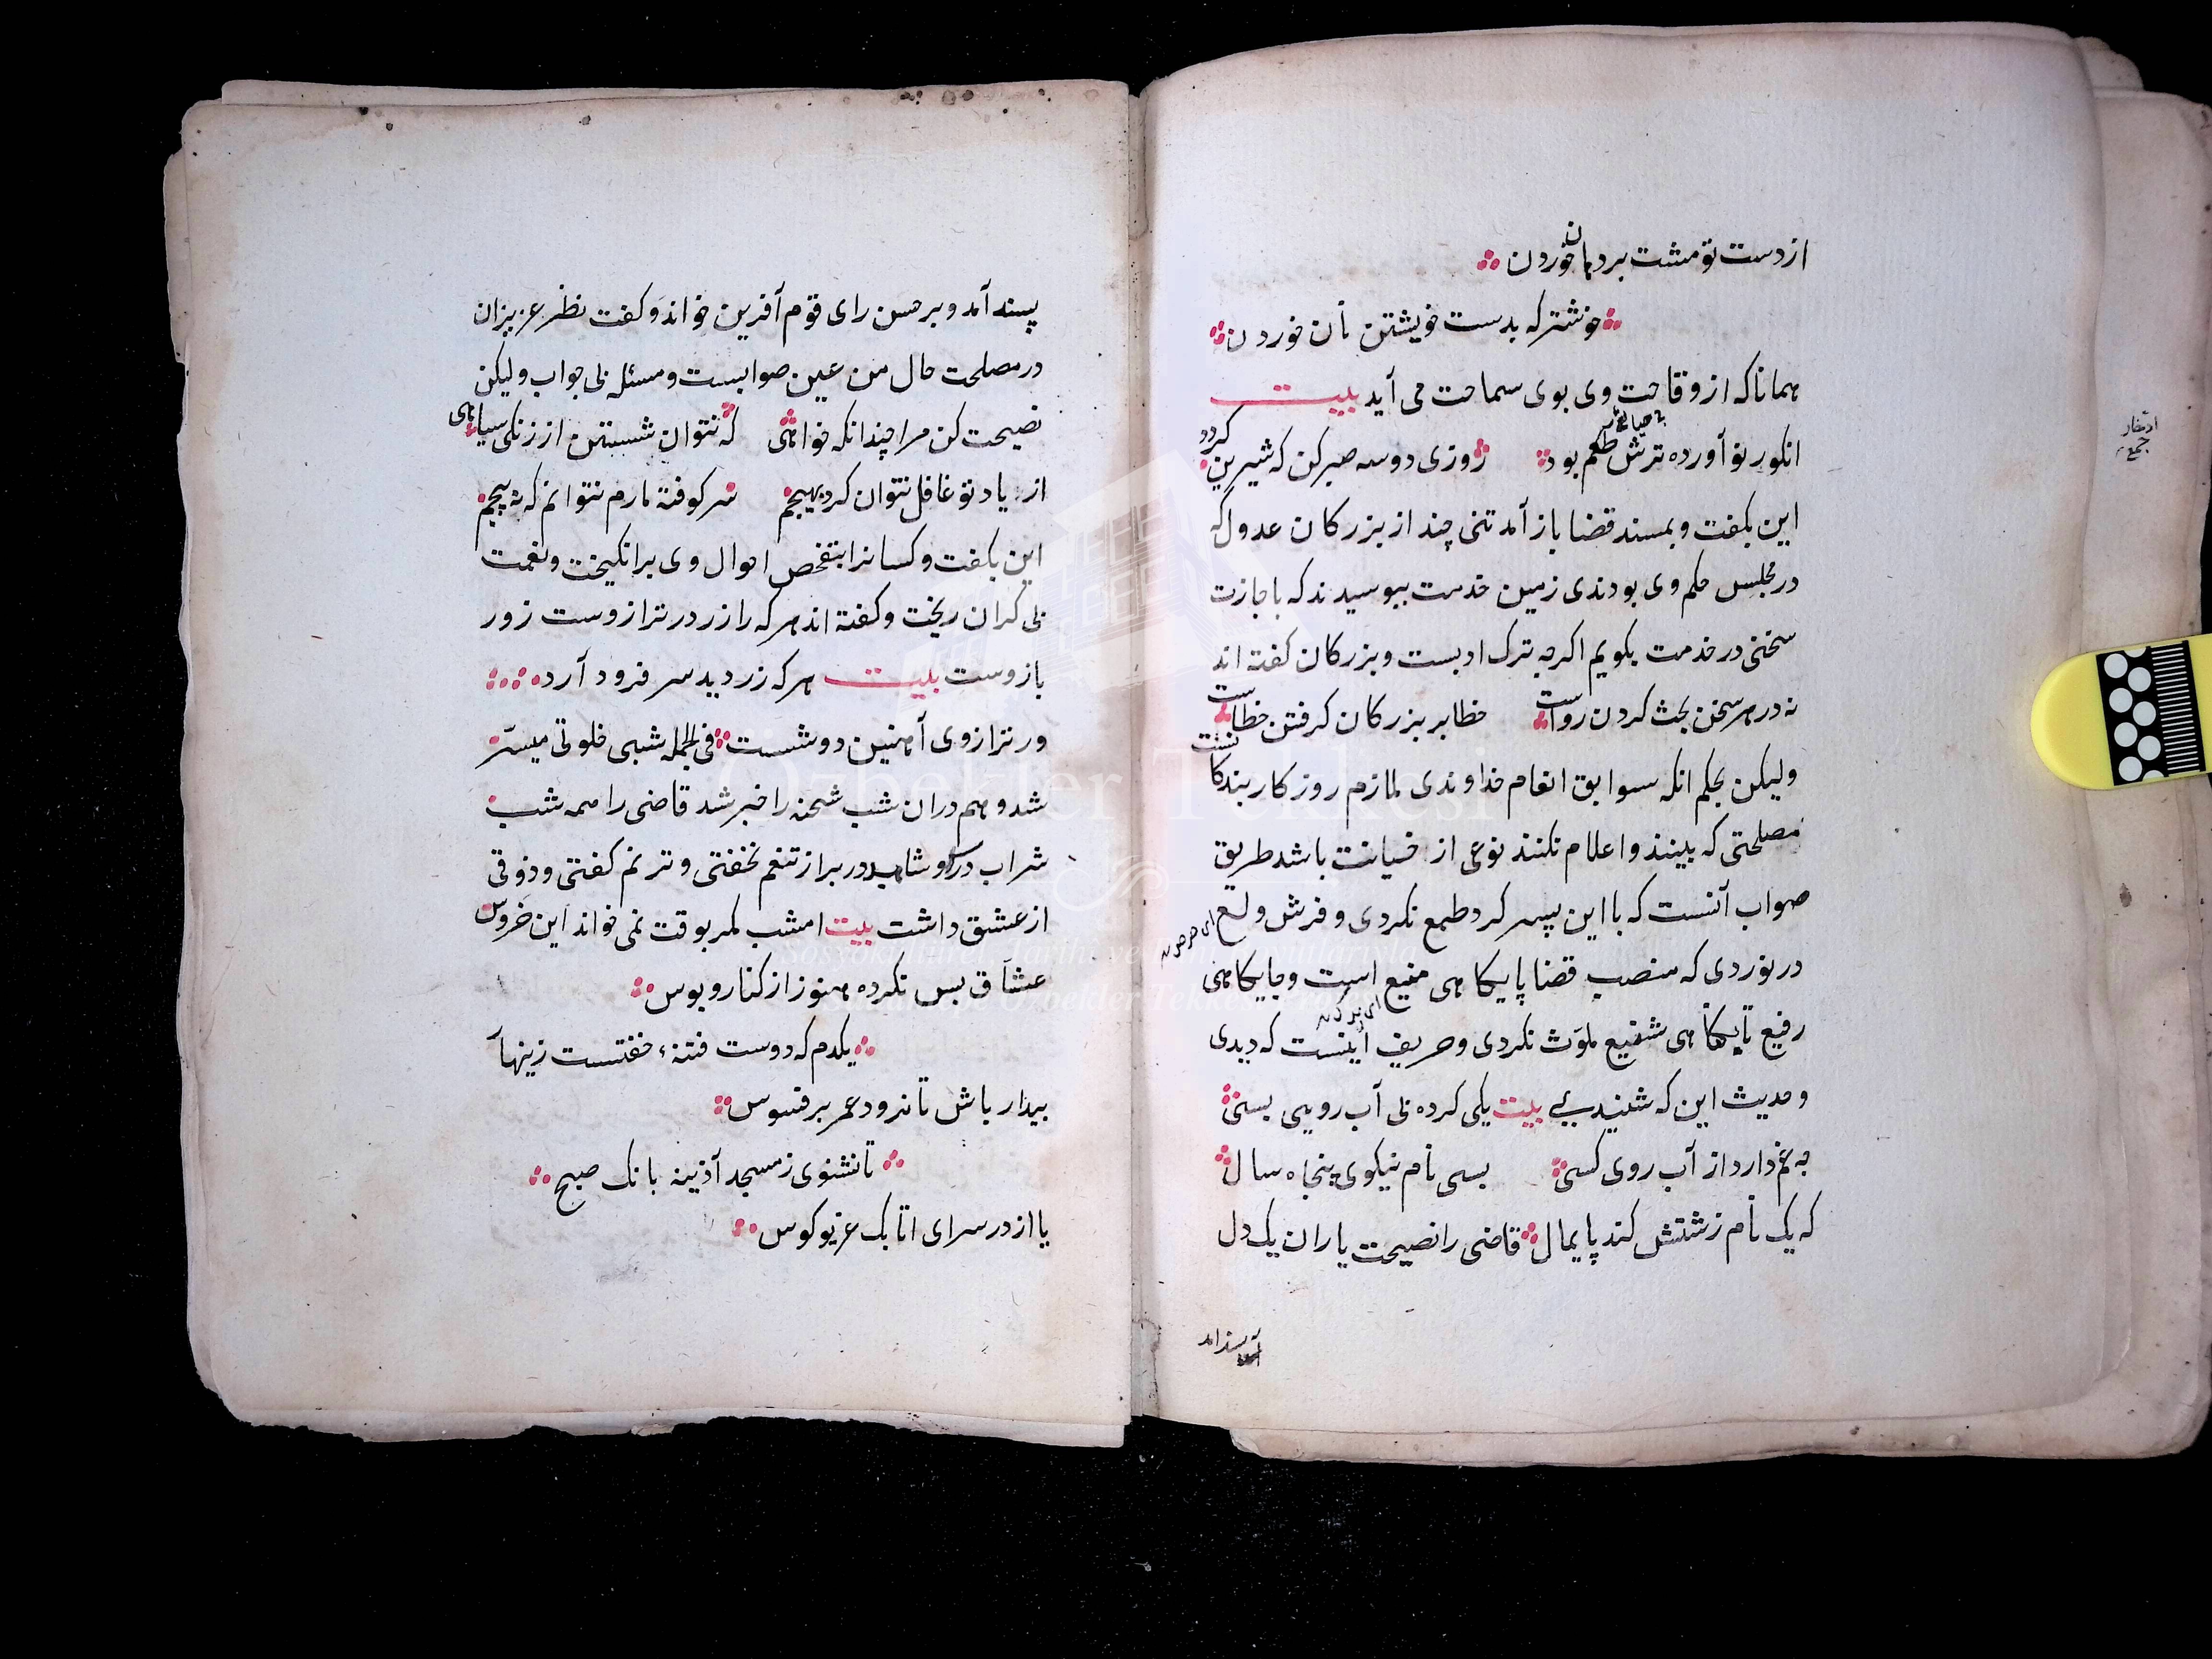 از دست تو مشت بر دهان خوردن
خوشتر که بدست خویشتن نان خوردن
همانا که از وقاحت وی بوی سماحت می آید بیت
انکور نو آورده ترش طعم بود روزی دو سه صبر کن که شیرین کردد
این بکفت و بمسند قضا باز آمد تنی چند از بزرکان عدول که
در مجلس حکم وی بودندی زمین خدمت ببوسیدند که باجازت
سخنی در خدمت بکویم اکرچه ترک ادبست و بزرکان کفته اند
نه در هر سخن بحث کردن رواست خطا بر بزرکان کرفتن خطاست
ولیکن بحکم انکه سوابق انعام خداوندی ملازم روزکار بندکانست
مصلحتی که بینند و اعلام نکنند نوعی از خیانت باشد طریق
صواب آنست که با این پسر کرد طمع نکردی و فرش ولع
ای حرص
در نوردی که منصب قضا پایکاهی منیع است و جایکاهی
رفیع تا بکناهی شنیع ملوّث نکردی و حریف اینست که دیدی
و حدیث این که شنیدی بیت یکی کرده بی آب رویی بسی
چه غم دارد از آب روی کسی بسی نام نیکوی پنجاه سال
که یک نام زشتش کند پایمال قاضی را نصیحت یاران یک دل
پسند آمد
ادخار
جمع
پسند آمد و بر حسن رای قوم آفرین خواند و کفت نظر عزیزان
در مصلحت حال من عین صوابست و مسئله بی جواب ولیکن
نصیحت کن مرا چندانکه خواهی که نتوان شستن از زنکی سیاهی
از یاد تو غافل نتوان کرد بهیچم سر کوفته مارم نتوانم که نه پیچم
این بکفت و کسانرا بتفحص احوال وی برانکیخت و نعمت
بی کران ریخت و کفته اند هر که را زر در ترازوست زور
بازوست بیت هر که زر دید سر فرود آرد
ور ترازوی آهنین دوشست فی الجمله شبی خلوتی میسّر
شد و هم دران شب شحنه را خبر شد قاضی را همه شب
شراب در سر و شاهد در بر از تنعم نخفتی و ترنم کفتی و ذوقی
از عشق داشت بیت امشب مکر بوقت نمی خواند این خروس
عشاق بس نکرده هنوز از کنار و بوس
یکدم که دوست فتنهٔ خفتست زینهار
بیدار باش تا نرود عمر بر فسوس
تا نشنوی ز مسجد آذینه بانک صبح
یا از در سرای اتابک غریو کوس